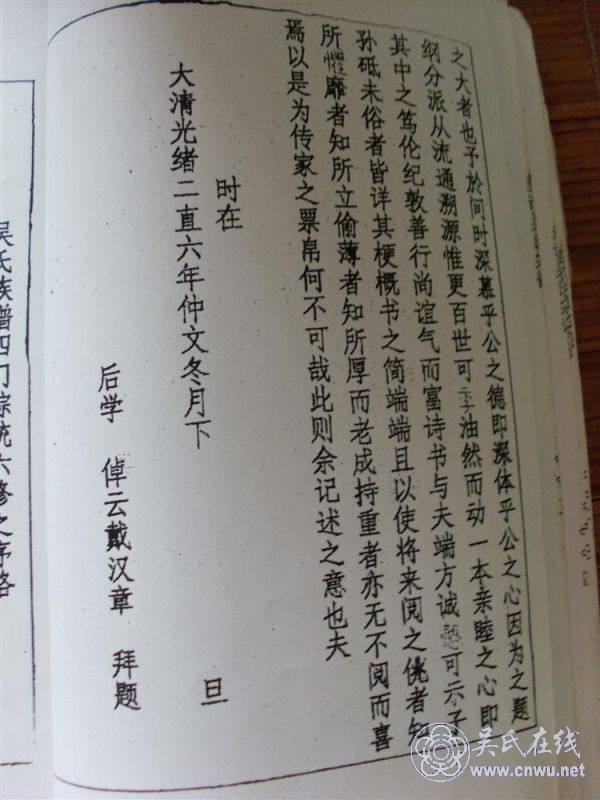 之大者也予於间时深慕乎公之德即深体乎公之心因为之题
纲分派从流通溯源惟更百世可示油然而动一本亲睦之心即
其中之笃伦纪敦善行尚谊气而富诗书与夫端方诚悫可示子
孙砥未俗者皆详其梗概书之简端端且以使将来阅之佻者知
所懼靡者知所立偷薄者知所厚而老成持重者亦无不阅而喜
焉以是为传家之票帛何不可哉此则余记述之意也夫
时在
大清光绪二直六年仲文冬月下
旦
后学 倬云戴汉章 拜题
吴氏族谱四门综统六修之序略
吴氏在线
www.cnwu.net